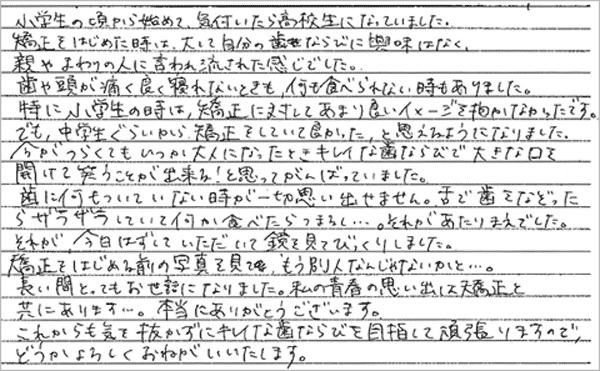 小学生の頃から始めて、気付いたら高校生になっていました。
矯正をはじめた時は、大して自分の歯ならびに興味はなく、
親やまわりの人に言われ流された感じでした。
歯や頭が痛く良く寝れないときも、何も食べられない時もありました。
特に小学生の時は、矯正に対してあまり良いイメージを抱かなかったです。
でも、中学生ぐらいから、矯正をしていて良かった、と思えるようになりました。
今がつらくてもいつか大人になったときキレイな歯ならびで大きな口を
開けて笑うことが出来る!と思ってがんばっていました。
歯に何もついていない時が一切思い出せません。舌で歯をなぞった
らザラザラしていて何か食べたらつまるし…。それがあたりまえでした。
それが、今日はずしていただいて鏡を見てびっくりしました。
矯正をはじめる前の写真を見て、もう別人なんじゃないかと…。
長い間とってもお世話になりました。私の青春の思い出は矯正と
共にあります…。本当にありがとうございます。
これからも気を抜かずにキレイな歯ならびを目指して頑張りますので、
どうかよろしくおねがいいたします。